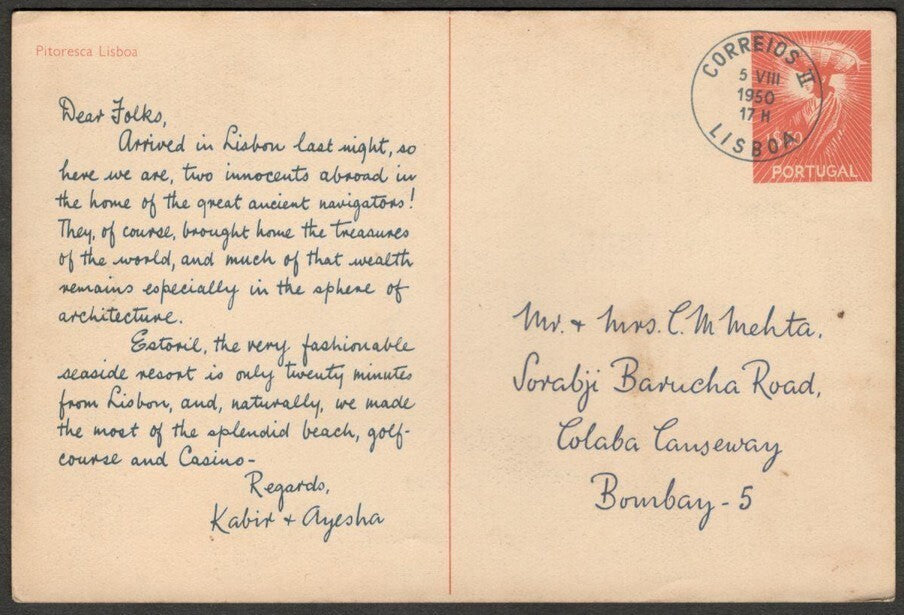 Pitoresca Lisboa
Dear Folks,
Arrived in Lisbon last night, so
here we are, two innocents abroad in
the home of the great ancient navigators!
They, of course, brought home the treasures
of the world, and much of that wealth
remains especially in the sphere of
architecture.
Estoril, the very fashionable
seaside resort is only twenty minutes
from Lisbon, and, naturally, we made
the most of the splendid beach, golf-
course and Casino-
Regards,
Kabir + Ayesha
CORREIOS II
5 VIII
1950
17 H
LISBOA
PORTUGAL
Mr. + Mrs. C. M Mehta,
Sorabji Barucha Road,
Colaba Causeway
Bombay-5